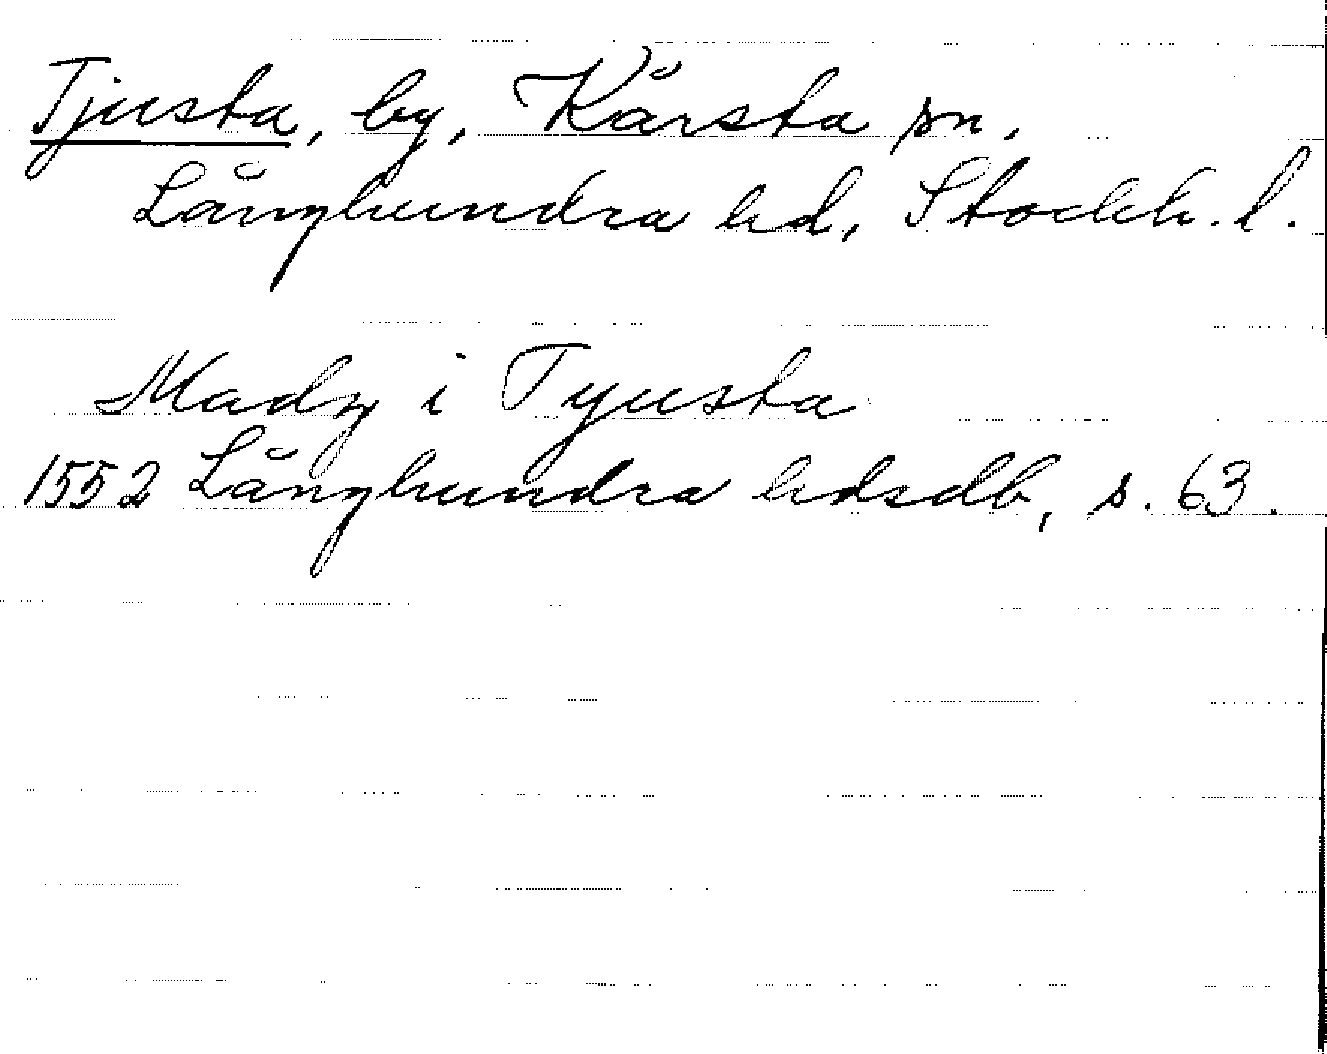 Tjusta, by, Kårsta sn.
Långhundra hd, Stockh. l.
Madz i Tyusta
1552 Långhundra hdsdb, s. 63.